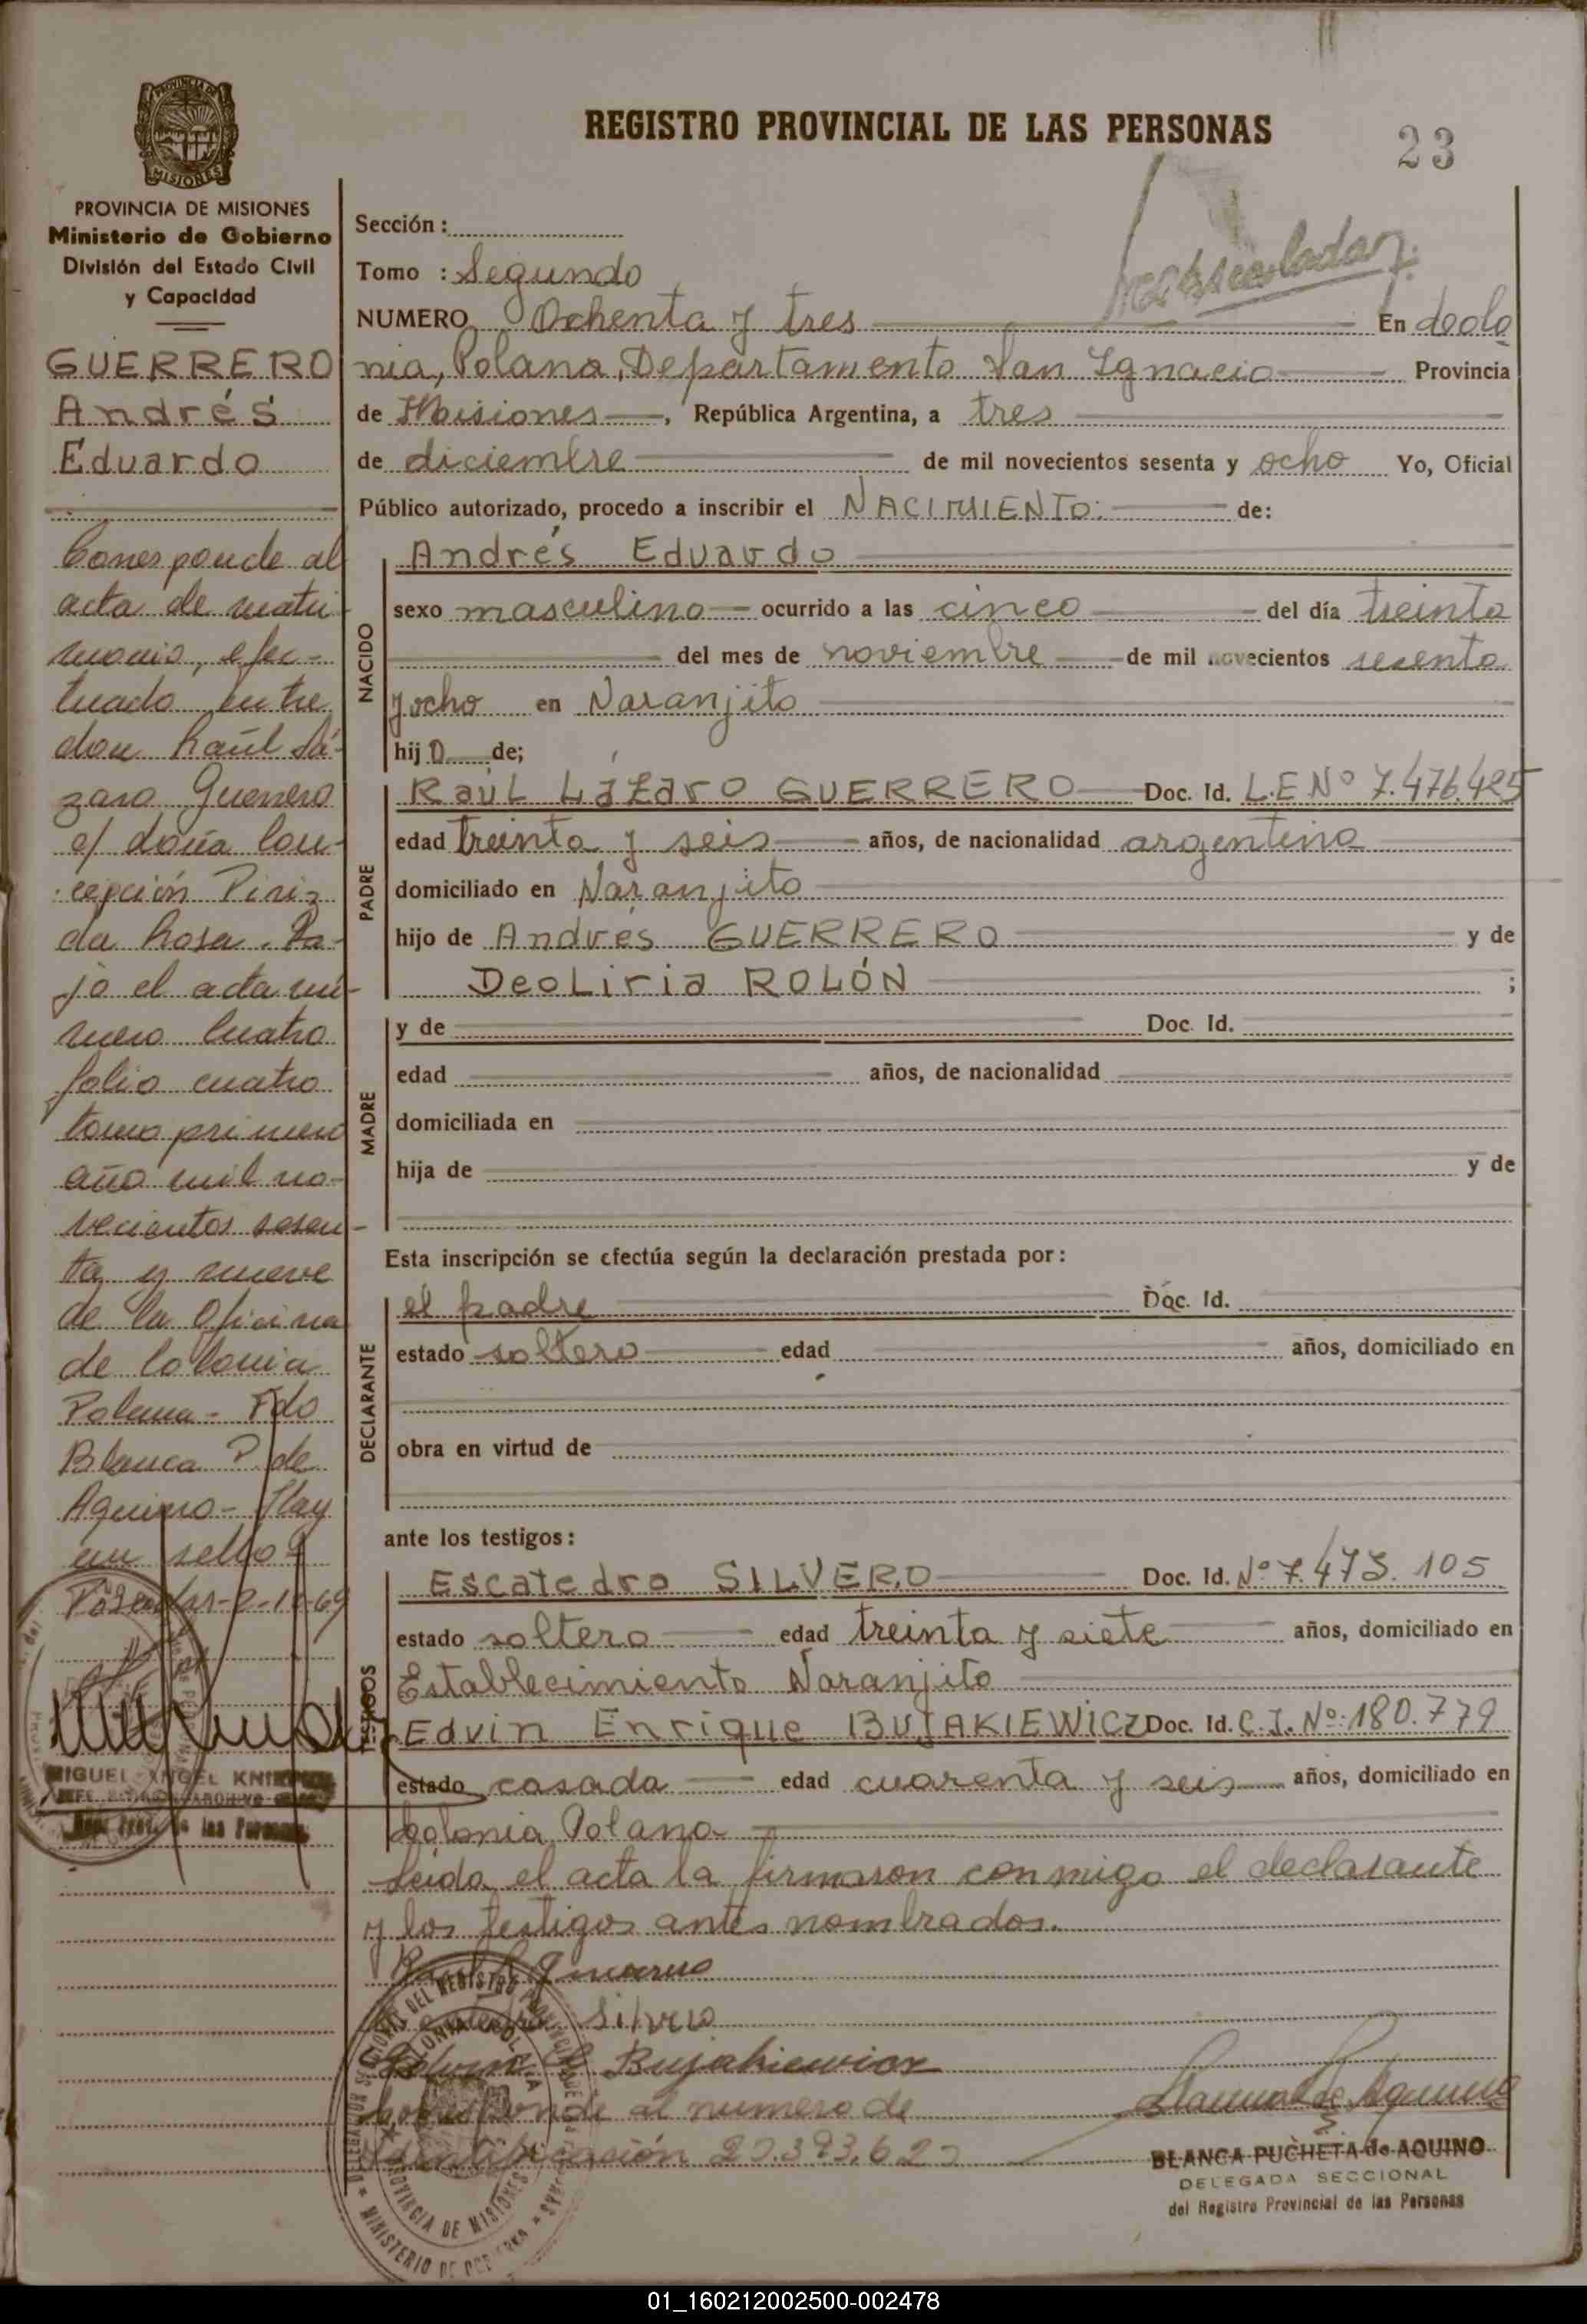 REGISTRO PROVINCIAL DE LAS PERSONAS
23
PROVINCIA DE MISIONES
Ministerio de Gobierno
División del Estado Civil
y Capacidad
GUERRERO
Andrés
Eduardo
Corresponde al
acta de matri-
monio, efec-
tuado entre
don Raúl Lá-
zaro Guerrero
c/ doña Con-
cepción Piriz
da Rosa. Ba-
jo el acta nú-
mero cuatro
folio cuatro
tomo primero
año mil no-
vecientos sesen-
ta y nueve
de la Oficina
de Colonia
Polana - Fdo
Blanca P. de
Aquino - Hay
un sello
MIGUEL ANGEL
Sección:
Tomo : Segundo
NUMERO Ochenta y tres En Colo
nia, Polana, Departamento San Ignacio Provincia
de Misiones, República Argentina, a tres
de diciembre de mil novecientos sesenta y ocho Yo, Oficial
Público autorizado, procedo a inscribir el NACIMIENTO: de:
NACIDO
Andrés Eduardo
sexo masculino ocurrido a las cinco del día treinta
del mes de noviembre de mil novecientos sesenta
y ocho en Naranjito
hijo de;
PADRE
Raúl Lázaro GUERRERO Doc. Id. L.E Nº 7.476.425
edad treinta y seis años, de nacionalidad argentina
domiciliado en Naranjito
hijo de Andrés GUERRERO y de
Deoliria ROLÓN ;
MADRE
y de Doc. Id.
edad años, de nacionalidad
domiciliada en
hija de y de
Esta inscripción se efectúa según la declaración prestada por:
DECLARANTE
el padre Doc. Id.
estado soltero edad años, domiciliado en
obra en virtud de
ante los testigos:
TESTIGOS
Escatedro SILVERO Doc. Id. Nº 7.473.105
estado soltero edad treinta y siete años, domiciliado en
Establecimiento Naranjito
Edvin Enrique BUJAKIEWICZ Doc. Id. C.I. Nº 180.779
estado casada edad cuarenta y seis años, domiciliado en
Colonia Polana
Leída el acta la firmaron conmigo el declarante
y los testigos antes nombrados.
Silvero
Bujakiewicz
Corresponde al numero de
identificación
BLANCA PUCHETA de AQUINO
DELEGADA SECCIONAL
del Registro Provincial de las Personas
01_160212002500-002478